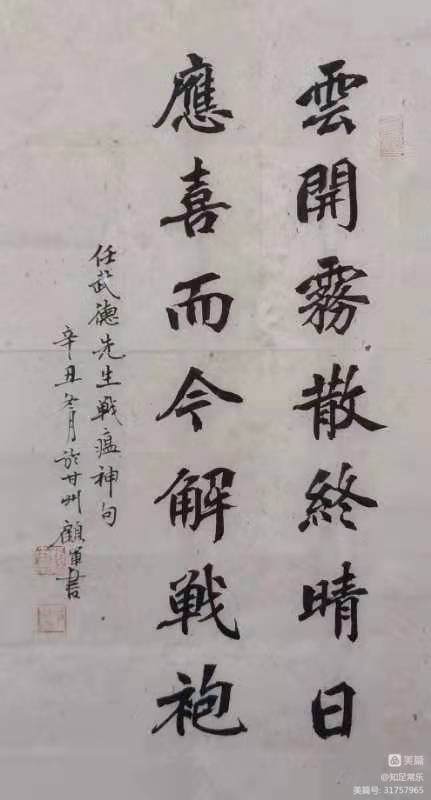 雲開霧散終晴日
應喜而今解戰袍
任武德先生戰瘟神句
辛丑冬月於甘州顧軍書
美篇
@知足常乐
美篇号: 31757965